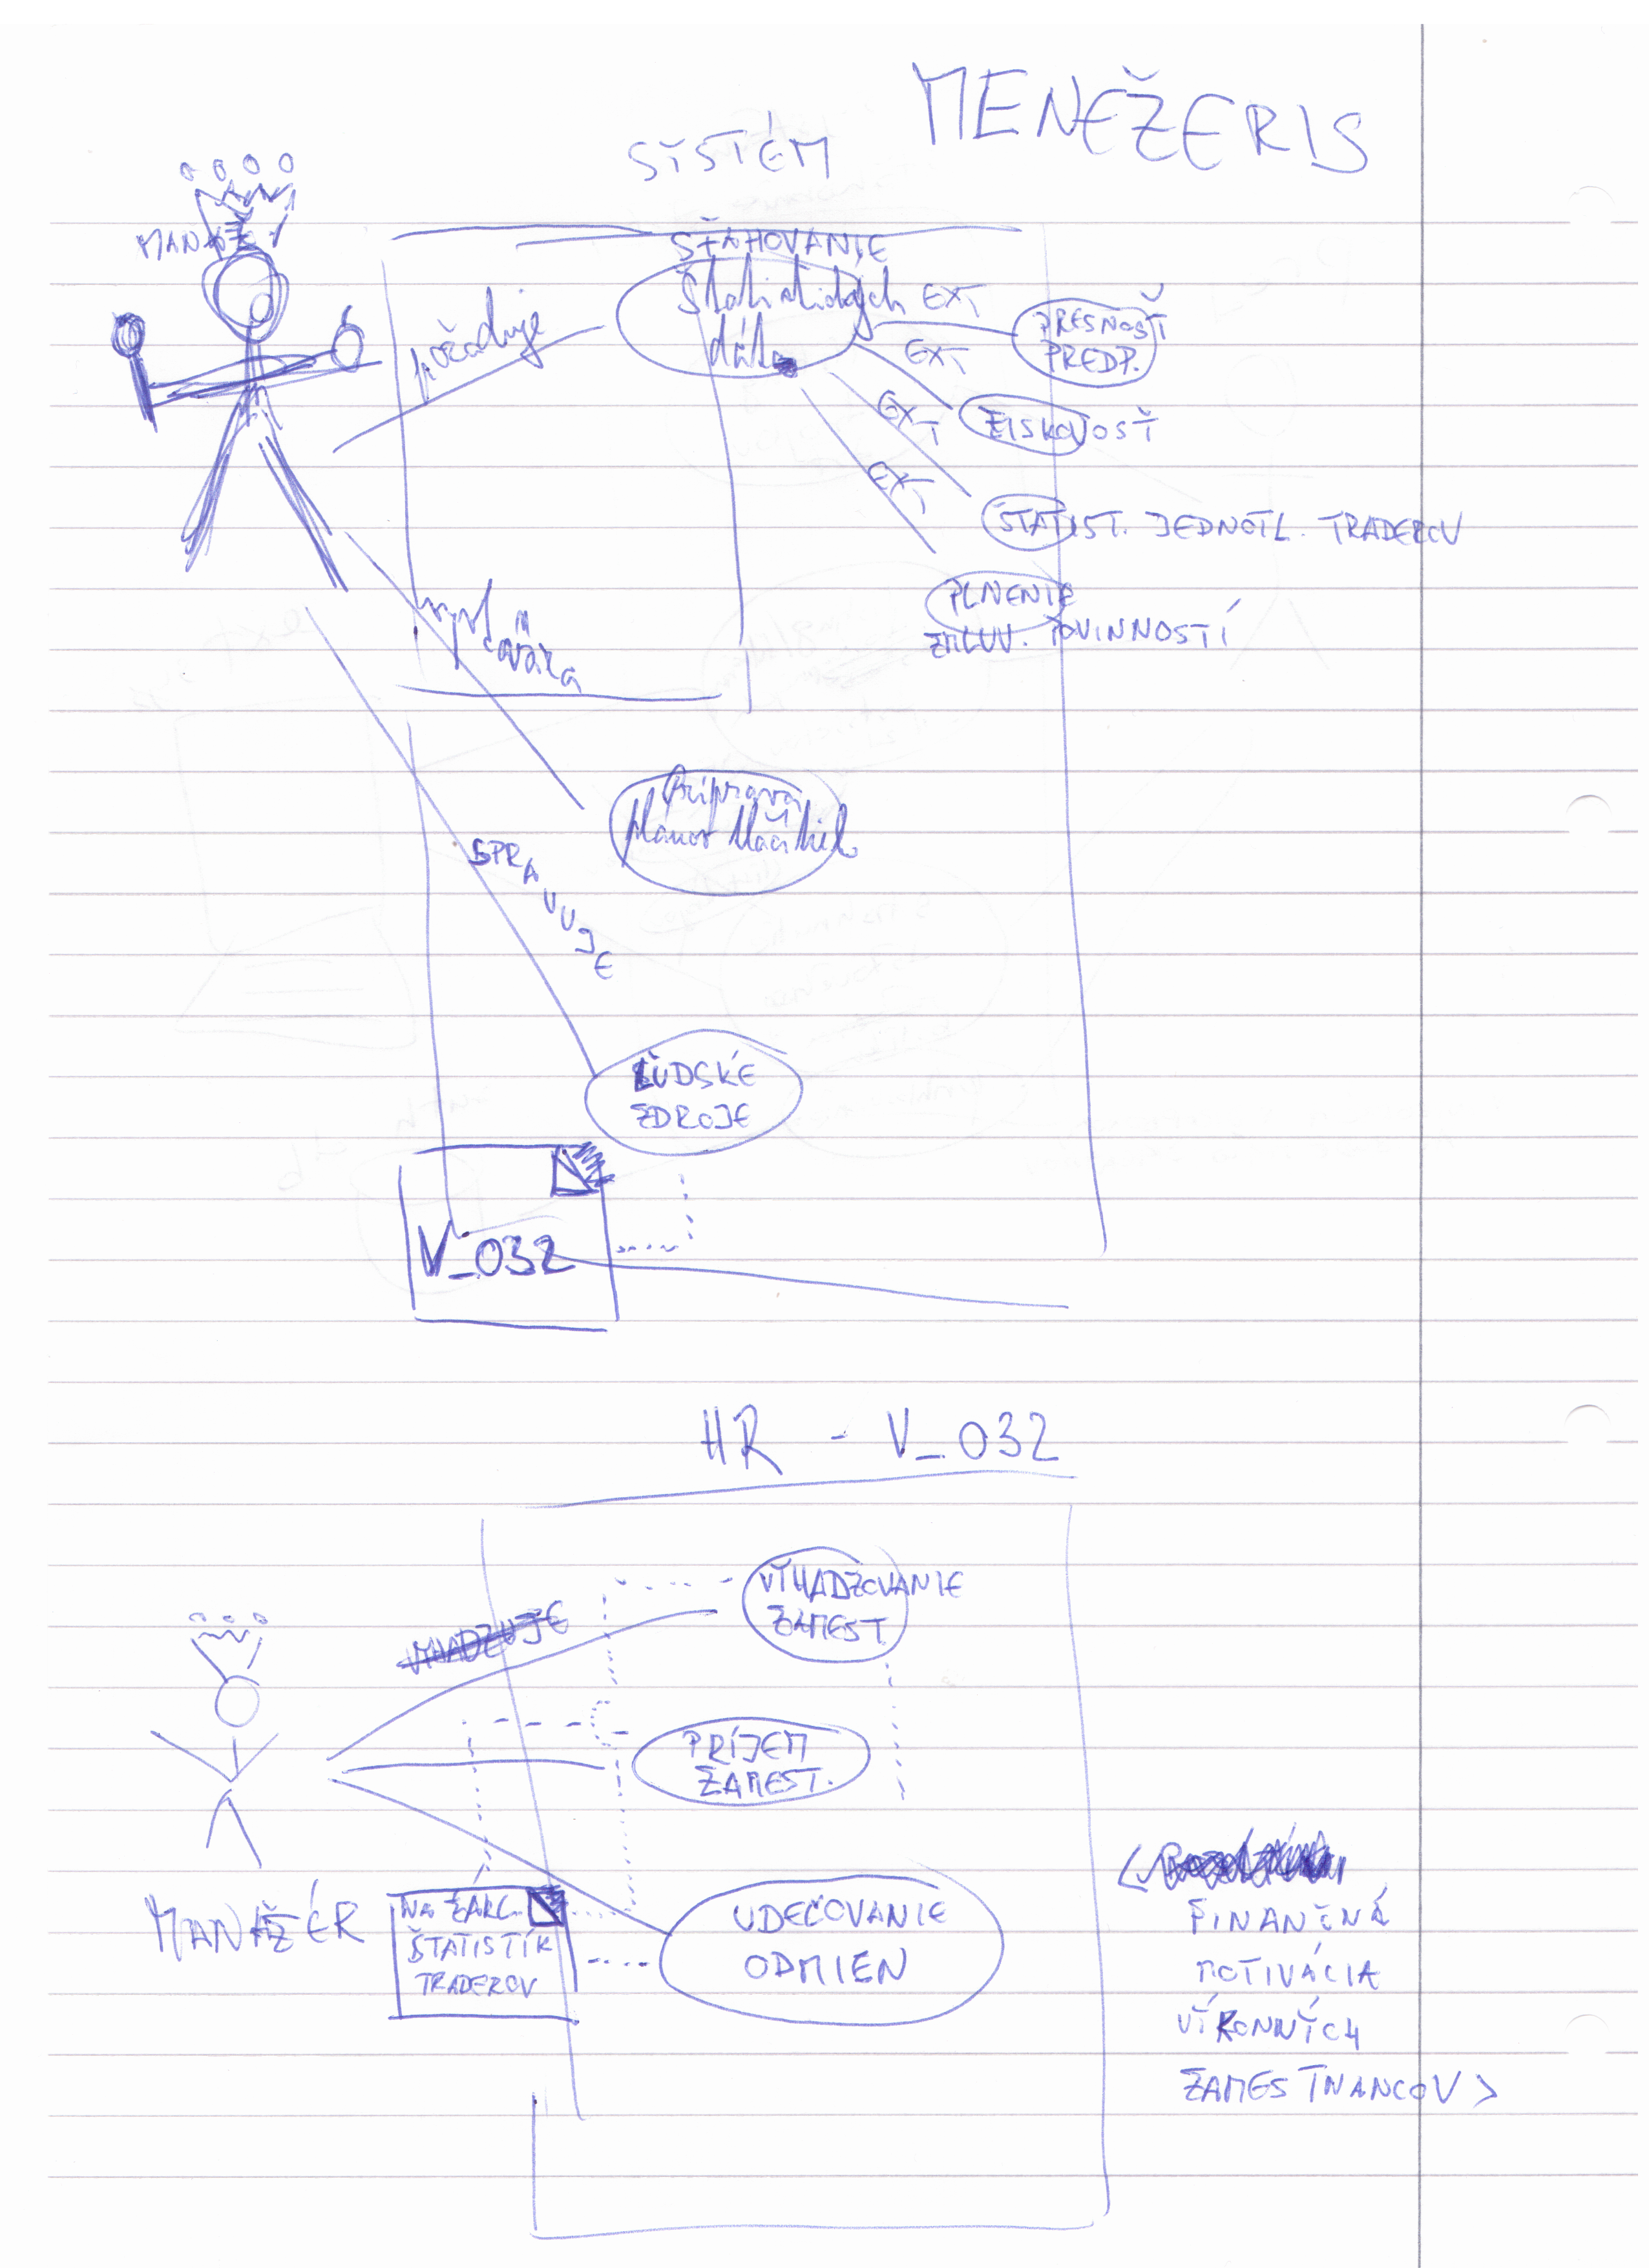 MENEŽERIS
SYSTÉM
MANAŽ
SŤAHOVANIE
štatistických
dát
požaduje
EXT
PRESNOSŤ
PREDP.
EXT
ZISKOVOSŤ
EXT
ŠTATIST. JEDNOTL. TRADEROV
EXT
PLNENIE
ZMLUV. POVINNOSTÍ
Príprava
plánov
SPRAVUJE
ĽUDSKÉ
ZDROJE
V_032
HR - V_032
VYHADZUJE
VYHADZOVANIE
ZAMEST.
PRÍJEM
ZAMEST.
MANAŽÉR
NA ZÁKL.
ŠTATISTÍK
TRADEROV
UDEĽOVANIE
ODMIEN
<
FINANČNÁ
MOTIVÁCIA
VÝKONNÝCH
ZAMESTNANCOV >